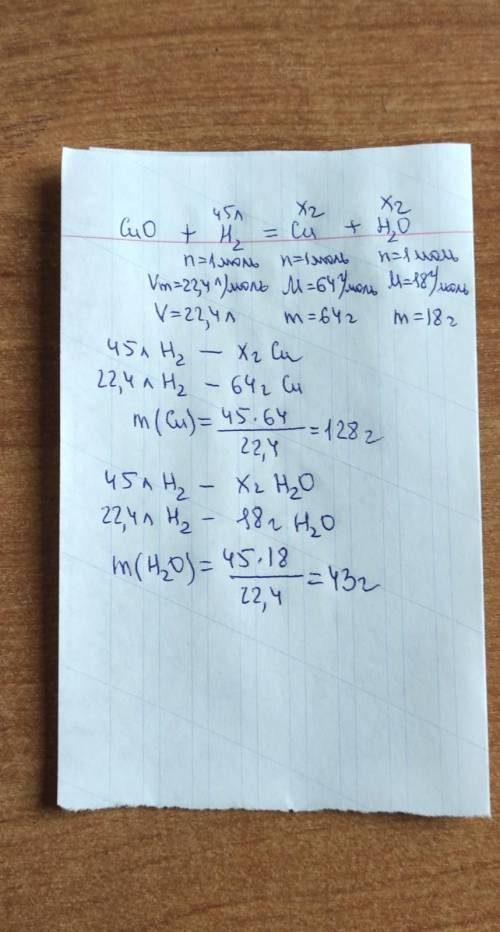 45л xг xг
CuO + H₂ = Cu + H₂O
n=1моль n=1моль n=1моль
Vm=22,4 л/моль M=64г/моль M=18г/моль
V=22,4л m=64г m=18г
45л H₂ — xг Cu
22,4л H₂ — 64г Cu
m(Cu)= 45·64 / 22,4 =128г
45л H₂ — xг H₂O
22,4л H₂ — 18г H₂O
m(H₂O)= 45·18 / 22,4 =43г